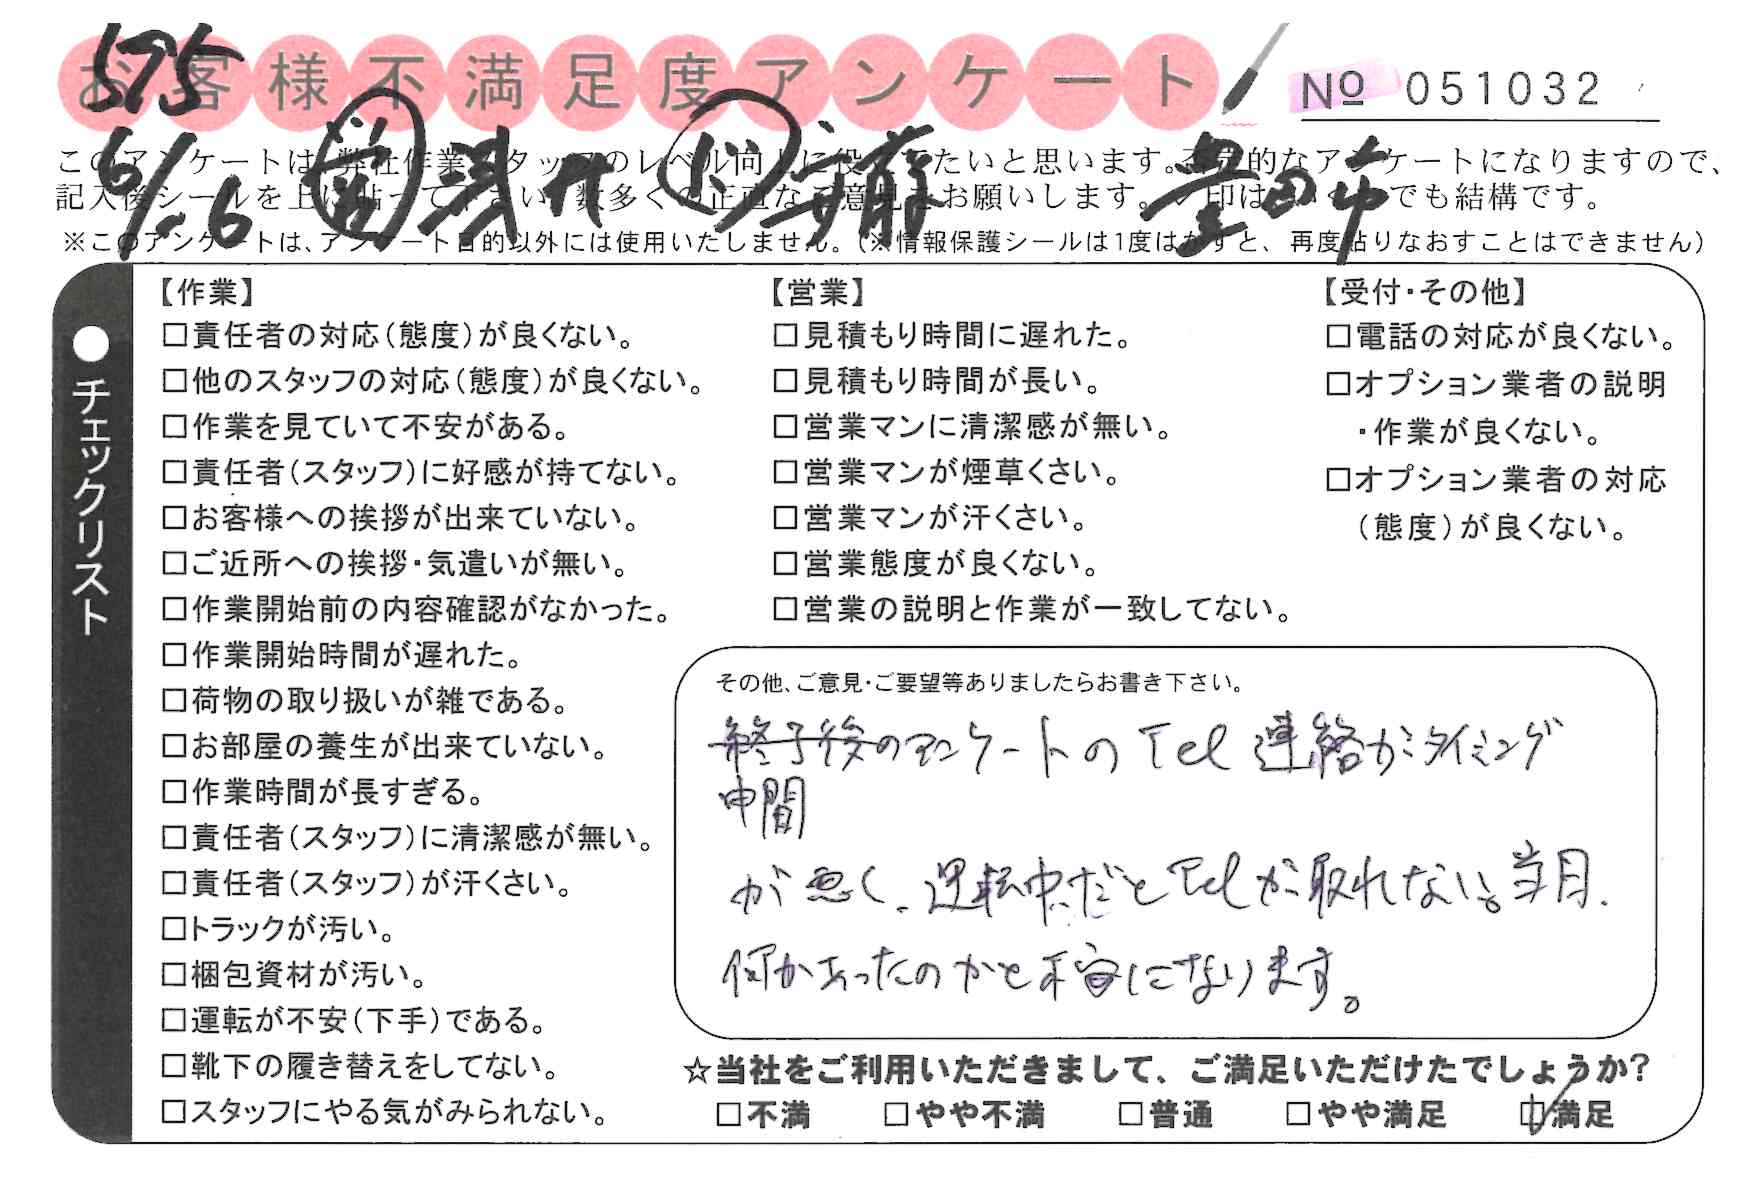 575
お客様不満足度アンケート
No 051032
6/26 豊田市
このアンケートは弊社作業スタッフのレベル向上に役立てたいと思います。否定的なアンケートになりますので、
記入後シールを上に貼って下さい。数多くの正直なご意見をお願いします。レ印はいくつでも結構です。
※このアンケートは、アンケート目的以外には使用いたしません。(※情報保護シールは1度はがすと、再度貼りなおすことはできません)
●チェックリスト
【作業】
□責任者の対応(態度)が良くない。
□他のスタッフの対応(態度)が良くない。
□作業を見ていて不安がある。
□責任者(スタッフ)に好感が持てない。
□お客様への挨拶が出来ていない。
□ご近所への挨拶・気遣いが無い。
□作業開始前の内容確認がなかった。
□作業開始時間が遅れた。
□荷物の取り扱いが雑である。
□お部屋の養生が出来ていない。
□作業時間が長すぎる。
□責任者(スタッフ)に清潔感が無い。
□責任者(スタッフ)が汗くさい。
□トラックが汚い。
□梱包資材が汚い。
□運転が不安(下手)である。
□靴下の履き替えをしてない。
□スタッフにやる気がみられない。
【営業】
□見積もり時間に遅れた。
□見積もり時間が長い。
□営業マンに清潔感が無い。
□営業マンが煙草くさい。
□営業マンが汗くさい。
□営業態度が良くない。
□営業の説明と作業が一致してない。
【受付・その他】
□電話の対応が良くない。
□オプション業者の説明
・作業が良くない。
□オプション業者の対応
(態度)が良くない。
その他、ご意見・ご要望等ありましたらお書き下さい。
終了後のアンケートのTel連絡がタイミング
中間
が悪く、運転中だとTelが取れない。当日、
何かあったのかと不安になります。
☆当社をご利用いただきまして、ご満足いただけたでしょうか?
□不満 □やや不満 □普通 □やや満足 ☑満足